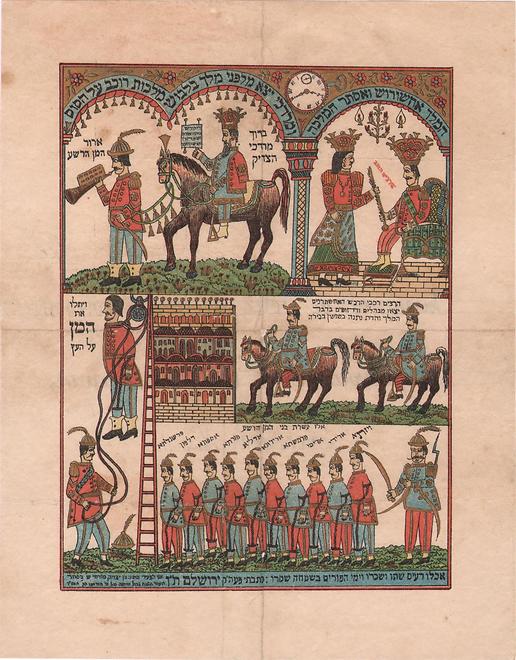 המלך אחשירוש ואסתר המלכה
ומרדכי יצא מלפני מלך בלבוש מלכות רוכב על הסוס
ברוך
מורדכי
הצדיק
ארור
המן הרשע
הרצים רכבי הרכש האחשתרנים
יצאו מבהלים ודחופים בדבר
המלך והדת נתנה בשושן הבירה
ויתלו
את
המן
על העץ
אלו עשרת בני המן הרשע
ויזתא ארידי אריסי פרמשתא ארידתא אדליא פורתא אספתא דלפון פרשנדתא
אכלו רעים שתו ושכרו וימי הפורים בשמחה שמרו ; נכתבת פעה"ק ירושלם ת"ו